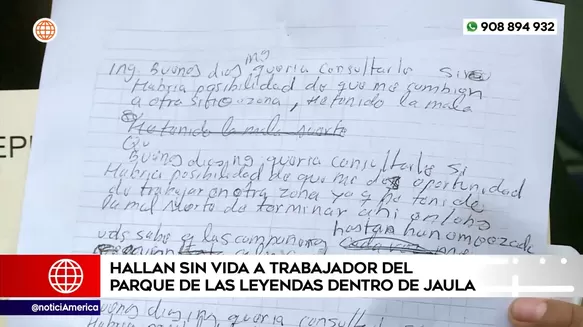 908 894 932
Ing. Buenos dias ing queria consultarle si
Habria posibilidad de que me cambien
a otra sitio o zona, He tenido la mala
He tenido la mala suerte
Qu
Buenos dias ing queria consultarle si
Habria posibilidad de que me de oportunidad
de trabajar en otra zona ya q he tenido
la mil suerte de terminar ahi en
hasta han
uds sabe q las
EP
Buenos dias ing queria
Habria
HALLAN SIN VIDA A TRABAJADOR DEL
PARQUE DE LAS LEYENDAS DENTRO DE JAULA
@noticiAmerica